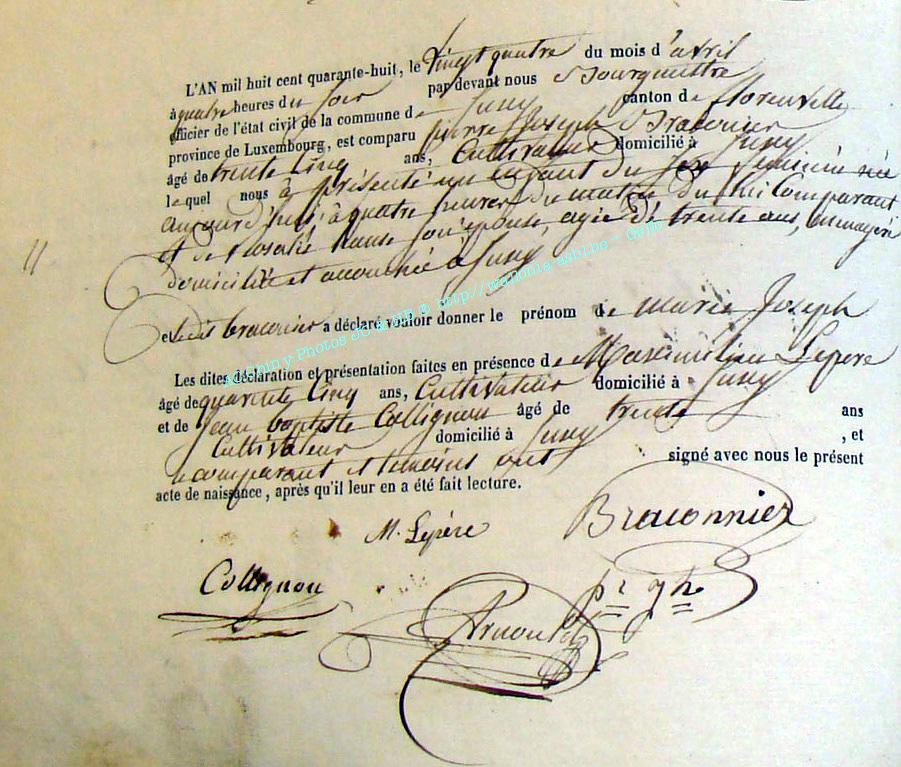 L'AN mil huit cent quarante-huit, le vingt quatre du mois d'avril
à quatre heures du soir par devant nous Bourguettre
officier de l'état civil de la commune de Juny canton de florenville
province de Luxembourg, est comparu pierre Joseph Braconier
âgé de trente cinq ans, Cultivateur domicilié à Juny
lequel nous à présenté un enfant du sex feminin née
aujourd'hui à quatre heures du matin du lui Comparant
et de Rosalie hanse son épouse, agée de trente ans, menagère
domiciliée et accouchée à Juny
11
et ledit braconier a déclaré vouloir donner le prénom de marie Joseph
Les dites déclaration et présentation faites en présence de Maximilien Lepere
âgé de quarante cinq ans, Cultivateur domicilié à Juny
et de Jean baptiste Collignon âgé de trente ans
Cultivateur domicilié à Juny , et
le comparant et temoins ont signé avec nous le présent
acte de naissance, après qu'il leur en a été fait lecture.
M. Lepère
Braconnier
Collignon
pr jh
Arnould
http://wallonia-asbl.be